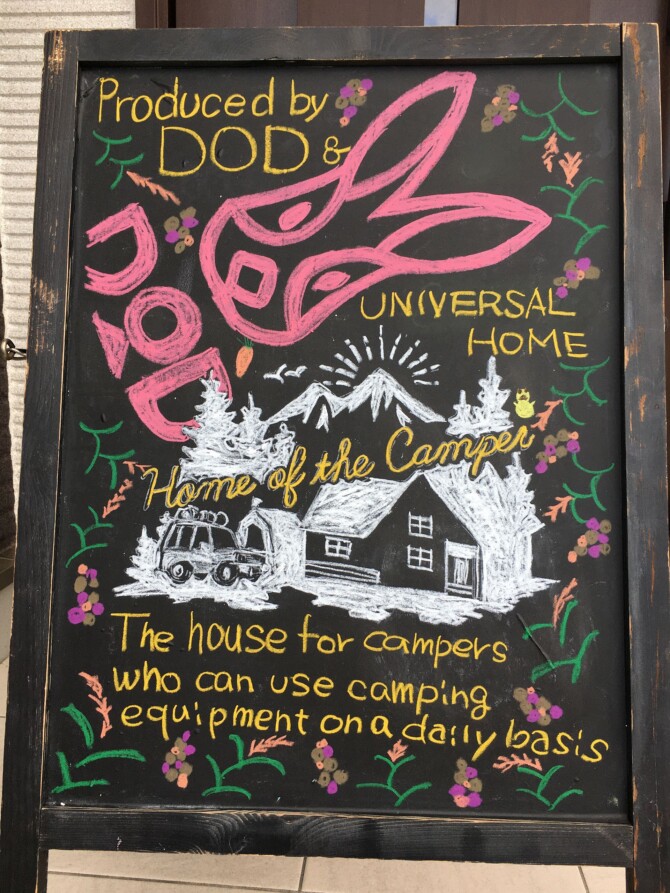 Produced by
DOD &
DOD
UNIVERSAL
HOME
Home of the Camper
The house for campers
who can use camping
equipment on a daily basis